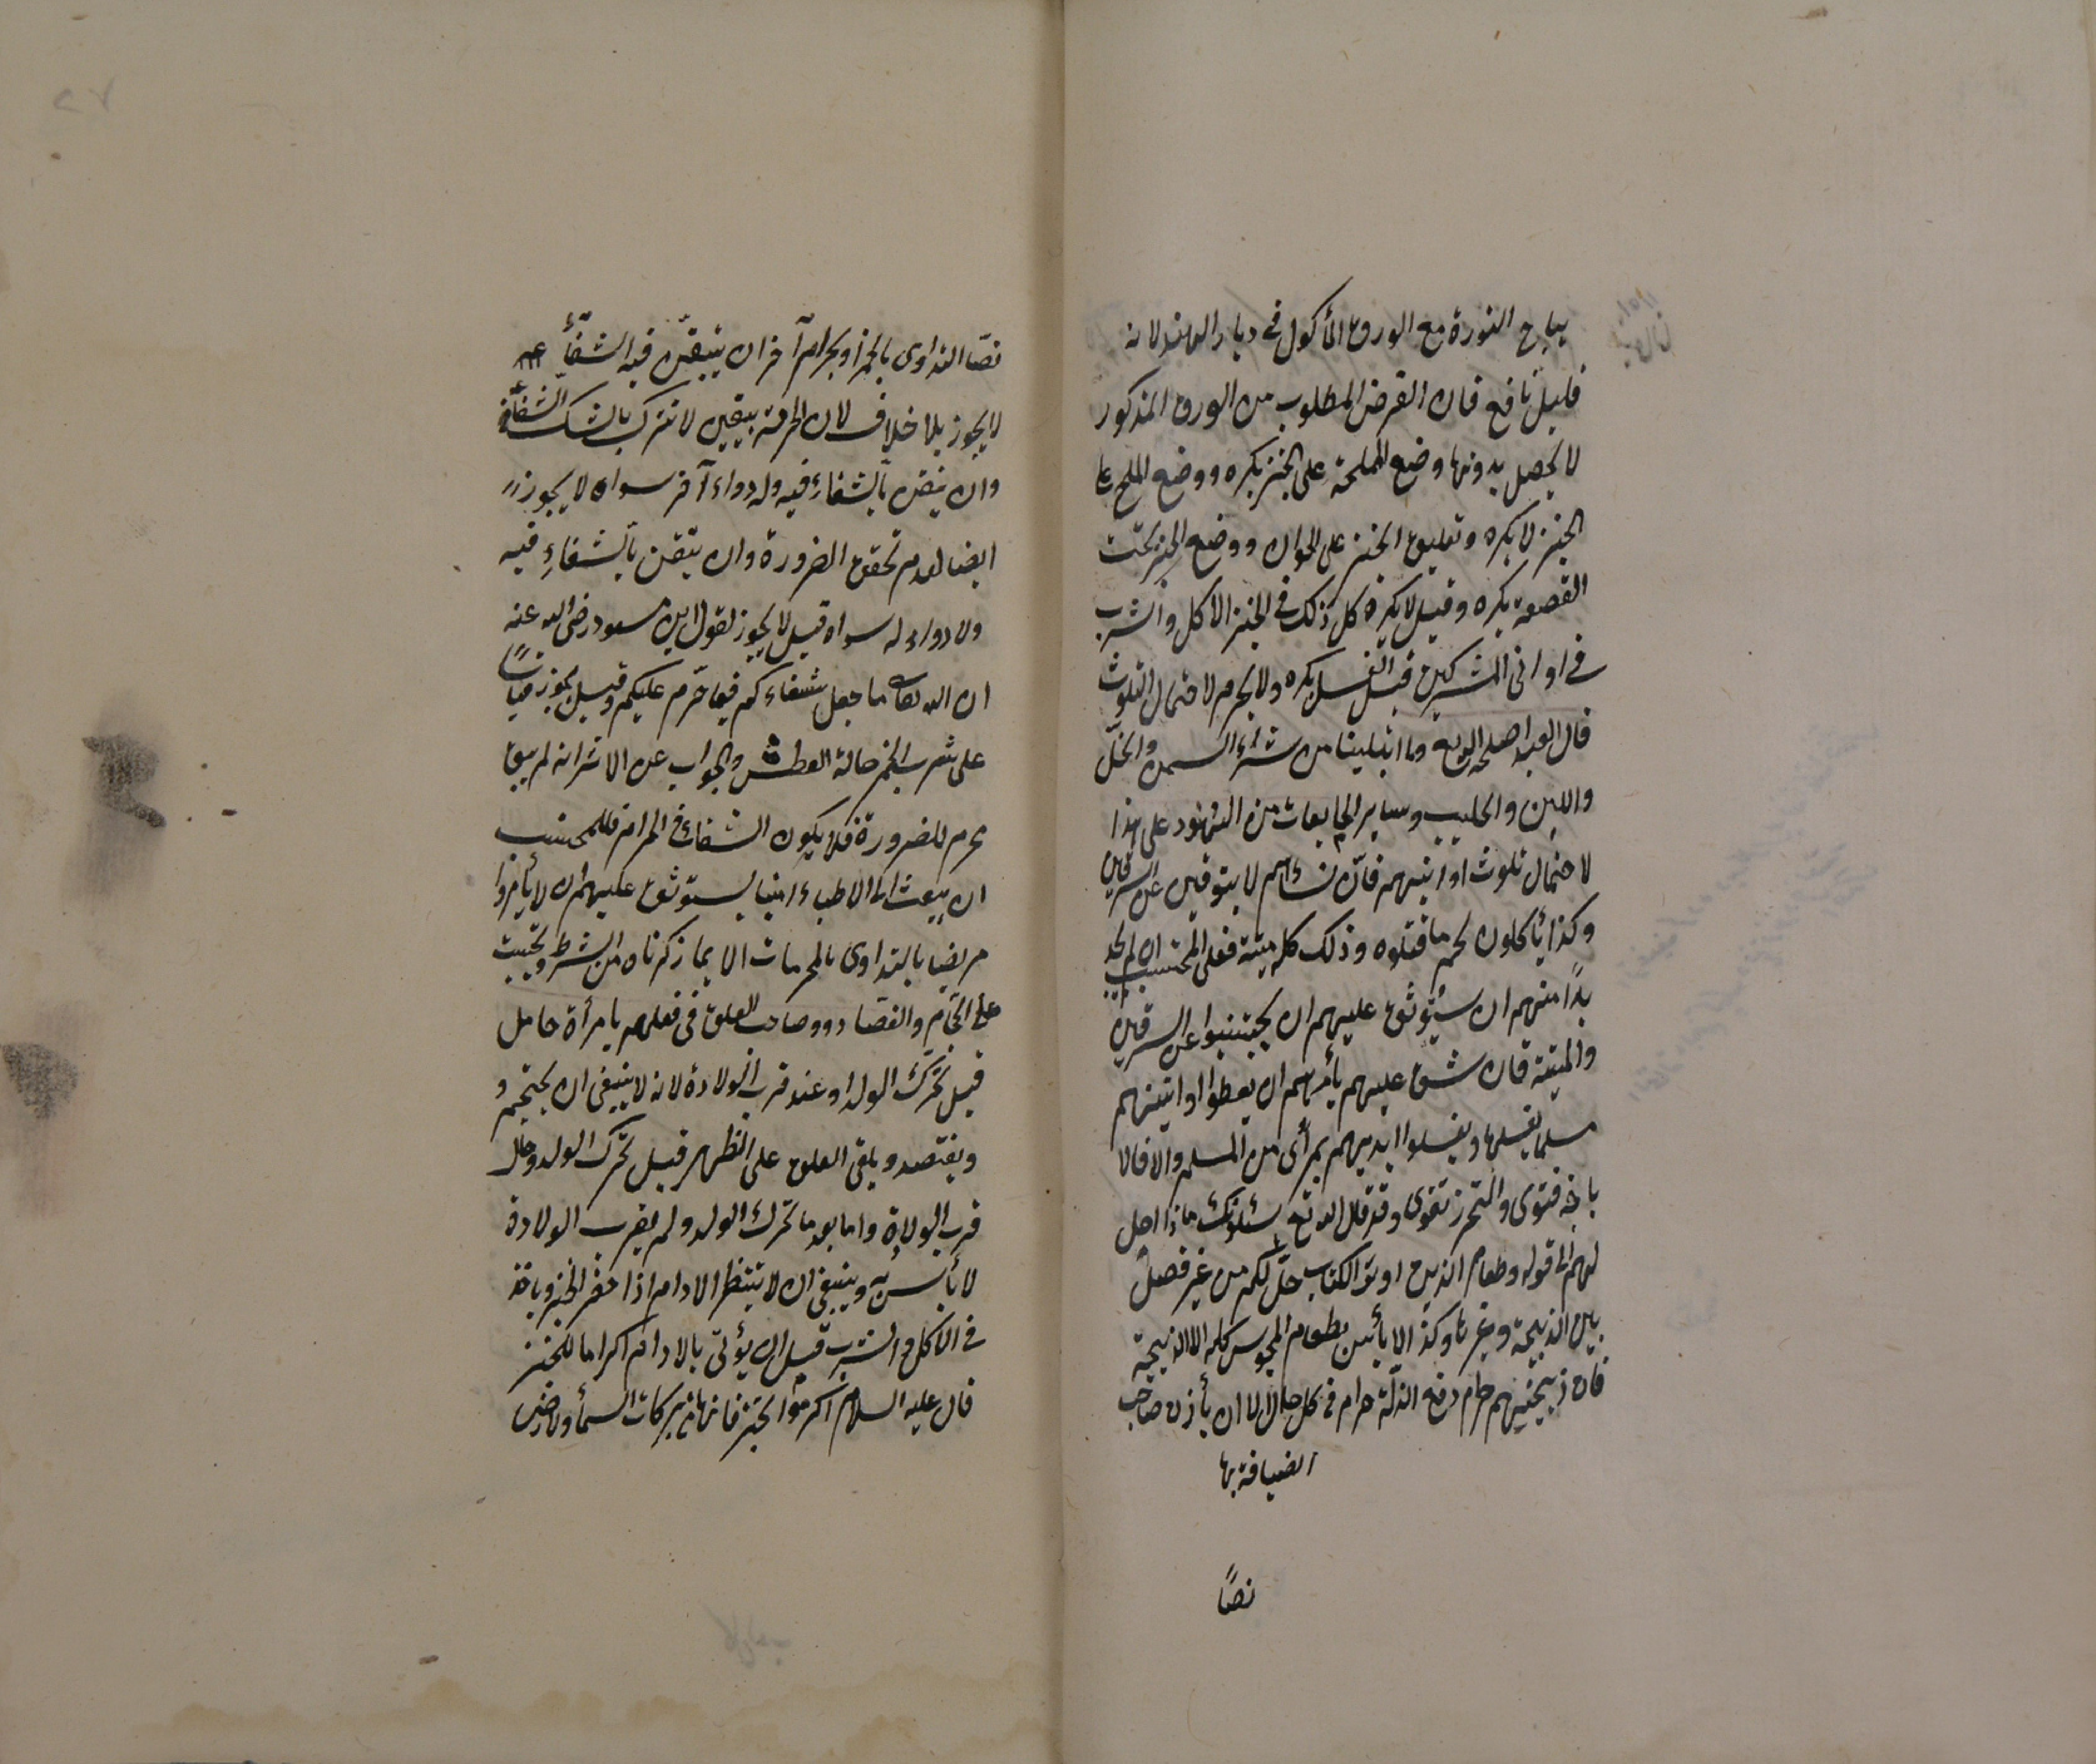 يباح النورة مع الورق المأكول في ديار الهند لانه
قليل نافع فان الغرض المطلوب من الورق المذكور
لا يحصل بدونها وضع المملحة على الخبز يكره ووضع الملح على
الخبز لا يكره وتعليق الخبز على الخوان ووضع الخبز تحت
القصعة يكره وقيل لا يكره كل ذلك في الخبز الاكل والشرب
في اواني المشركين قبل الغسل يكره ولا يحرم لاحتمال التلوث
قال العبد اصلحه الله وما ابتلينا من شراء السمن والخل
واللبن والحليب وساير المايعات من الهنود على هذا
لاحتمال تلوث اوانيهم فان نساءهم لا يتوقين عن السرقين
وكذا يأكلون لحم ما قتلوه وذلك كله ميتة فعلى المحتسب ان لم يجد
بدا منهم ان يستوثق عليهم ان يجتنبوا عن السرقين
والميتة فان شق عليهم يأمرهم ان يعطوا اوانيهم
مسلما يغسلها ويغسلوا ايديهم بمرأى من المسلم والا فالا
باحة فتوى والتحرز تقوى وقد قال الله تع يسئلونك ماذا احل
لهم الى قوله وطعام الذين اوتوا الكتاب حل لكم من غير فصل
بين الذبيحة وغيرها وكذا لا بأس بطعام المجوس كله الا الذبيحة
فان ذبيحتهم حرام رفع الذلة حرام في كل حال الا ان يأذن صاحب
الضيافة بها
نصا
نصا التداوى بالخمر او بحرام آخر ان يتيقن فيه الشفاء
لا يجوز بلا خلاف لان الحرمة بيقين لا تترك بالشك الشفاء
وان تيقن بالشفاء فيه وله دواء آخر سواه لا يجوز
ايضا لعدم تحقق الضرورة وان تيقن بالشفاء فيه
ولا دواء له سواه قيل لا يجوز لقول ابن مسعود رضى الله عنه
ان الله تعالى ما جعل شفاءكم فيما حرم عليكم وقيل يجوز قياسا
على شرب الخمر حالة العطش والجواب عن الاثر انه لم يبق
محرم للضرورة فلا يكون الشفاء في الحرام فللمحتسب
ان يبعث الى الاطباء امينا يستوثق عليهم ان لا يأمروا
مريضا بالتداوى بالمحرمات الا بما ذكرناه من الشرط ويحتسب
على الحجام والفصاد وصاحب العلق في فعلهم بامرأة حامل
قبل تحرك الولد او عند قرب الولادة لانه لا ينبغى ان يحتجم و
ويفتصد ويلقى العلق على الظهر قبل تحرك الولد وحال
قرب الولادة واما بعد ما تحرك الولد ولم يقرب الولادة
لا بأس به وينبغى ان لا ينتظر الادام اذا حضر الخبز وياخذ
في الاكل والشرب قبل ان يؤتى بالادام اكراما للخبز
قال عليه السلام اكرموا الخبز فانها من بركات السماء والارض